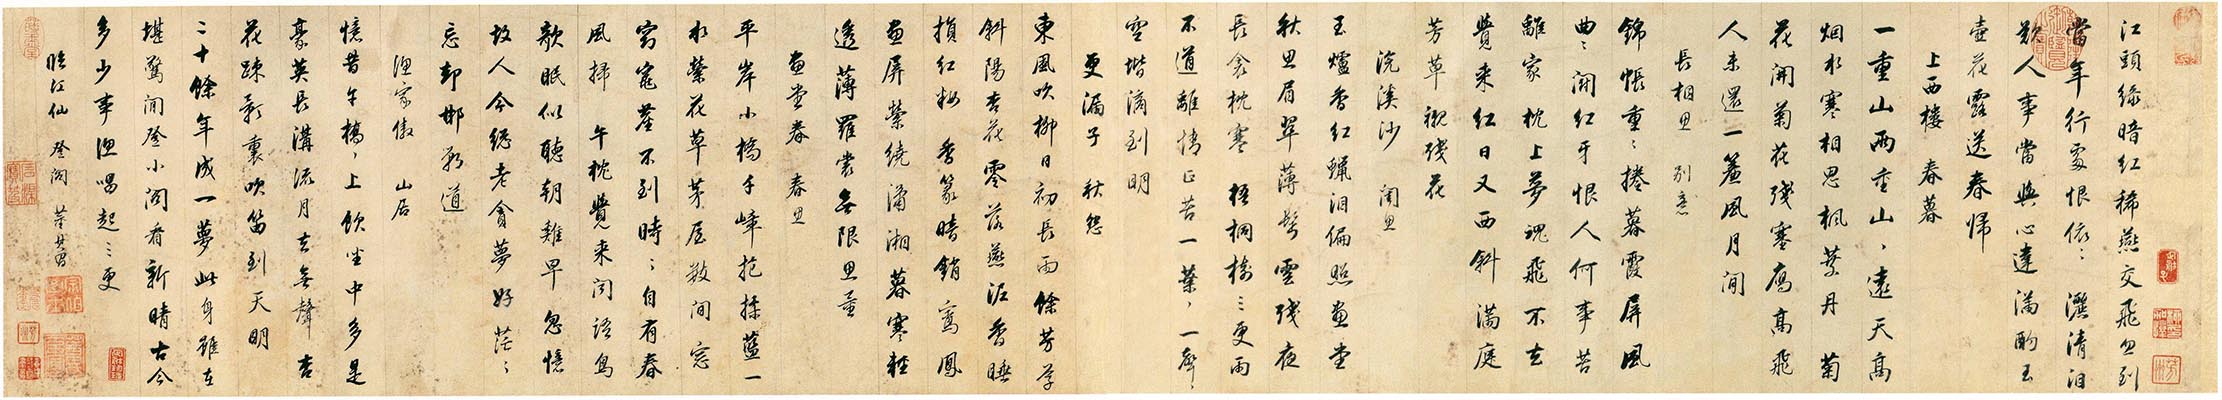 江頭綠暗紅稀燕交飛忽到
當年行處恨依〻　灑清泪
歎人事當與心違滿酌玉
壺花露送春歸
上西樓　春暮
一重山兩重山〻遠天高
烟水寒相思楓葉丹　菊
花開菊花殘塞鴈高飛
人未還一簾風月閒
長相思　別意
錦帳重〻捲暮霞屏風
曲〻鬪紅牙恨人何事苦
離家　枕上夢魂飛不去
覺来紅日又西斜滿庭
芳草襯殘花
浣溪沙　閨思
玉爐香紅蠟泪偏照畫堂
秋思眉翠薄鬢雲殘夜
長衾枕寒　梧桐樹三更雨
不道離情正苦一葉〻一聲〻
空堦滴到明
更漏子　秋怨
東風吹柳日初長雨餘芳草
斜陽杏花零落燕泥香睡
損紅粧　香篆暗銷鸞鳳
畫屏縈繞瀟湘暮寒輕
透薄羅裳無限思量
畫堂春　春思
平岸小橋千嶂抱揉藍一
水縈花草茅屋數間窓
窈窕塵不到時〻自有春
風掃　午枕覺来聞語鳥
欹眠似聽朝雞早忽憶
故人今總老貪夢好茫〻
忘却邯鄲道
漁家傲　山居
憶昔午橋〻上飲坐中多是
豪英長溝流月去無聲杏
花疎影裏吹笛到天明
二十餘年成一夢此身雖在
堪驚閒登小閣看新晴古今
多少事漁唱起三更
臨江仙　登閣　董其昌